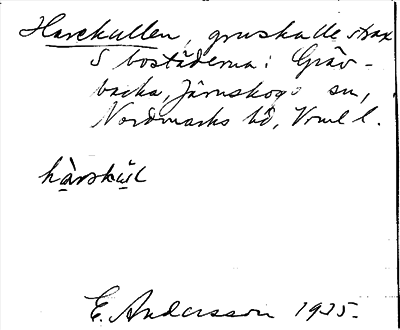 Harekullen, gruskulle strax
S bostäderna i Gräv-
backa, Järnskogs sn,
Nordmarks hd, Vrml l.
E. Andersson 1935.